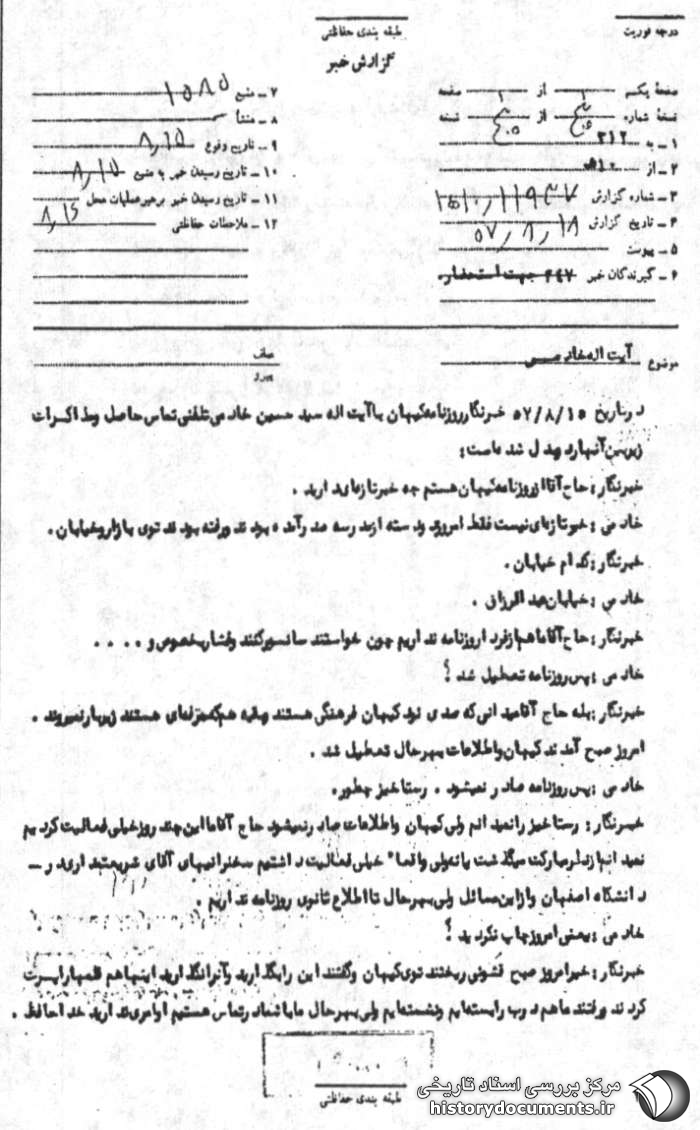 درجه فوریت
طبقه بندی حفاظتی
گزارش خبر
صفحه یکم از صفحه
نسخه شماره از نسخه
۱ - به ۳۱۲
۲ - از
۳ - شماره گزارش
۴ - تاریخ گزارش ۵۷/۸/۱۸
۵ - پیوست
۶ - گیرندگان خبر ۲۴۷ جهت استحضار
۷ - منبع ۱۵۸۵
۸ - منشأ
۹ - تاریخ وقوع ۸/۱۵
۱۰ - تاریخ رسیدن خبر به منبع ۸/۱۵
۱۱ - تاریخ رسیدن خبر برهبر عملیات محل ۸/۱۶
۱۲ - ملاحظات حفاظتی
موضوع آیت اله خادمی
عطف
پیرو
درتاریخ ۵۷/۸/۱۵ خبرنگار روزنامه کیهان با آیت اله سید حسین خادمی تلفنی تماس حاصل ومذاکرات
زیر بین آنها رد و بدل شده است:
خبرنگار: حاج آقا از روزنامه کیهان هستم چه خبر تازه ای دارید .
خادمی : خبر تازه ای نیست فقط امروز دو دسته از مدرسه صدر آمده بودند ورفته بودند توی بازار وخیابان .
خبرنگار: کدام خیابان .
خادمی : خیابان عبدالرزاق .
خبرنگار: حاج آقا ما هم از فردا روزنامه نداریم چون خواستند سانسور کنند وفشار بخصوص و ....
خادمی : پس روزنامه تعطیل شد ؟
خبرنگار: بله حاج آقا میدانی که صدی نود کیهان فرهنگی هستند وبقیه هم که حرفه ای هستند زیر بار نمیروند .
امروز صبح آمدند کیهان واطلاعات بهرحال تعطیل شد .
خادمی : پس روزنامه صادر نمیشود . رستاخیز چطور .
خبرنگار : رستاخیز را نمیدانم ولی کیهان واطلاعات صادر نمیشود حاج آقا ما این چند روز خیلی فعالیت کردیم
نمیدانم از نظر مبارکت میگذشت یا نه ولی واقعا" خیلی فعالیت داشتیم سخنرانیهای آقای شریعتمداری در -
دانشگاه اصفهان واز این مسائل ولی بهرحال تا اطلاع ثانوی روزنامه نداریم .
خادمی : یعنی امروز چاپ نکردید ؟
خبرنگار: خیر امروز صبح قشونی ریختند توی کیهان وگفتند این را بگذارید وآنرا نگذارید اینها هم قلمها را پرت
کردند ورفتند ما هم درب را بسته ایم ونشسته ایم ولی بهرحال ما با شما در تماس هستیم اوامری ندارید خداحافظ .
طبقه بندی حفاظتی
مرکز بررسی اسناد تاریخی
historydocuments.ir